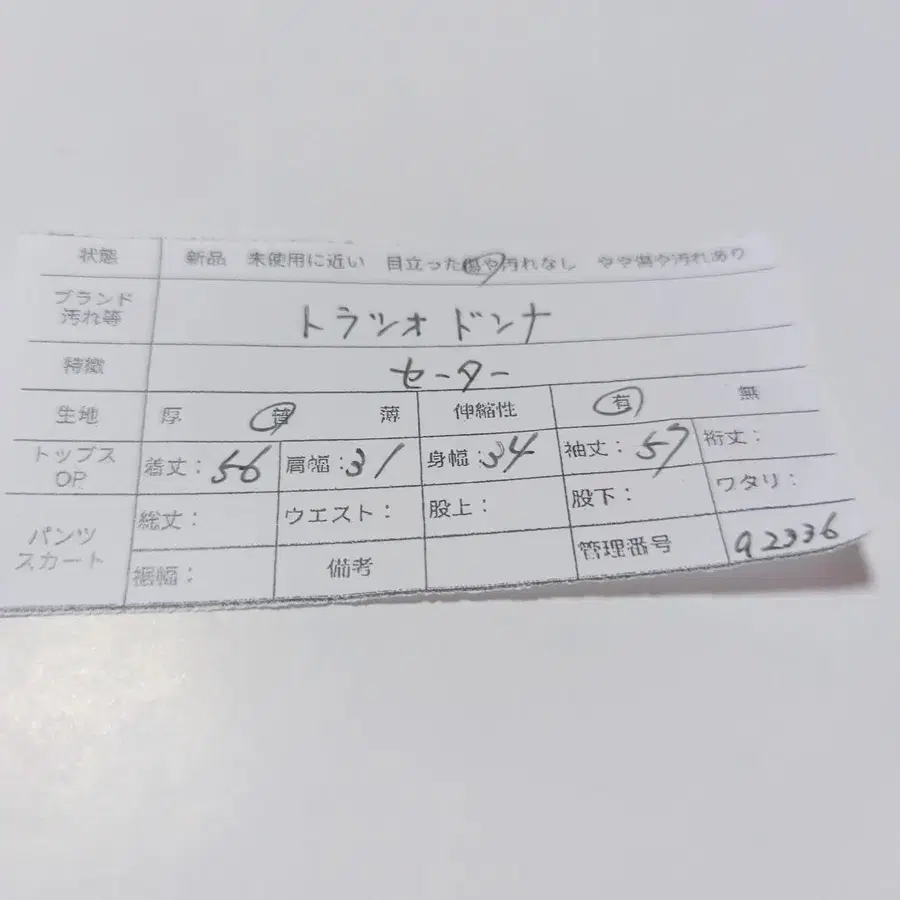 状態 新品 未使用に近い 目立った傷や汚れなし やや傷や汚れあり
ブランド
汚れ等
トラツオ ドンナ
特徴 セーター
生地 厚 普 薄 伸縮性 有 無
トップス
OP
着丈：56 肩幅：31 身幅：34 袖丈：57 裄丈：
パンツ
スカート
総丈： ウエスト： 股上： 股下： ワタリ：
裾幅： 備考 管理番号 a2336